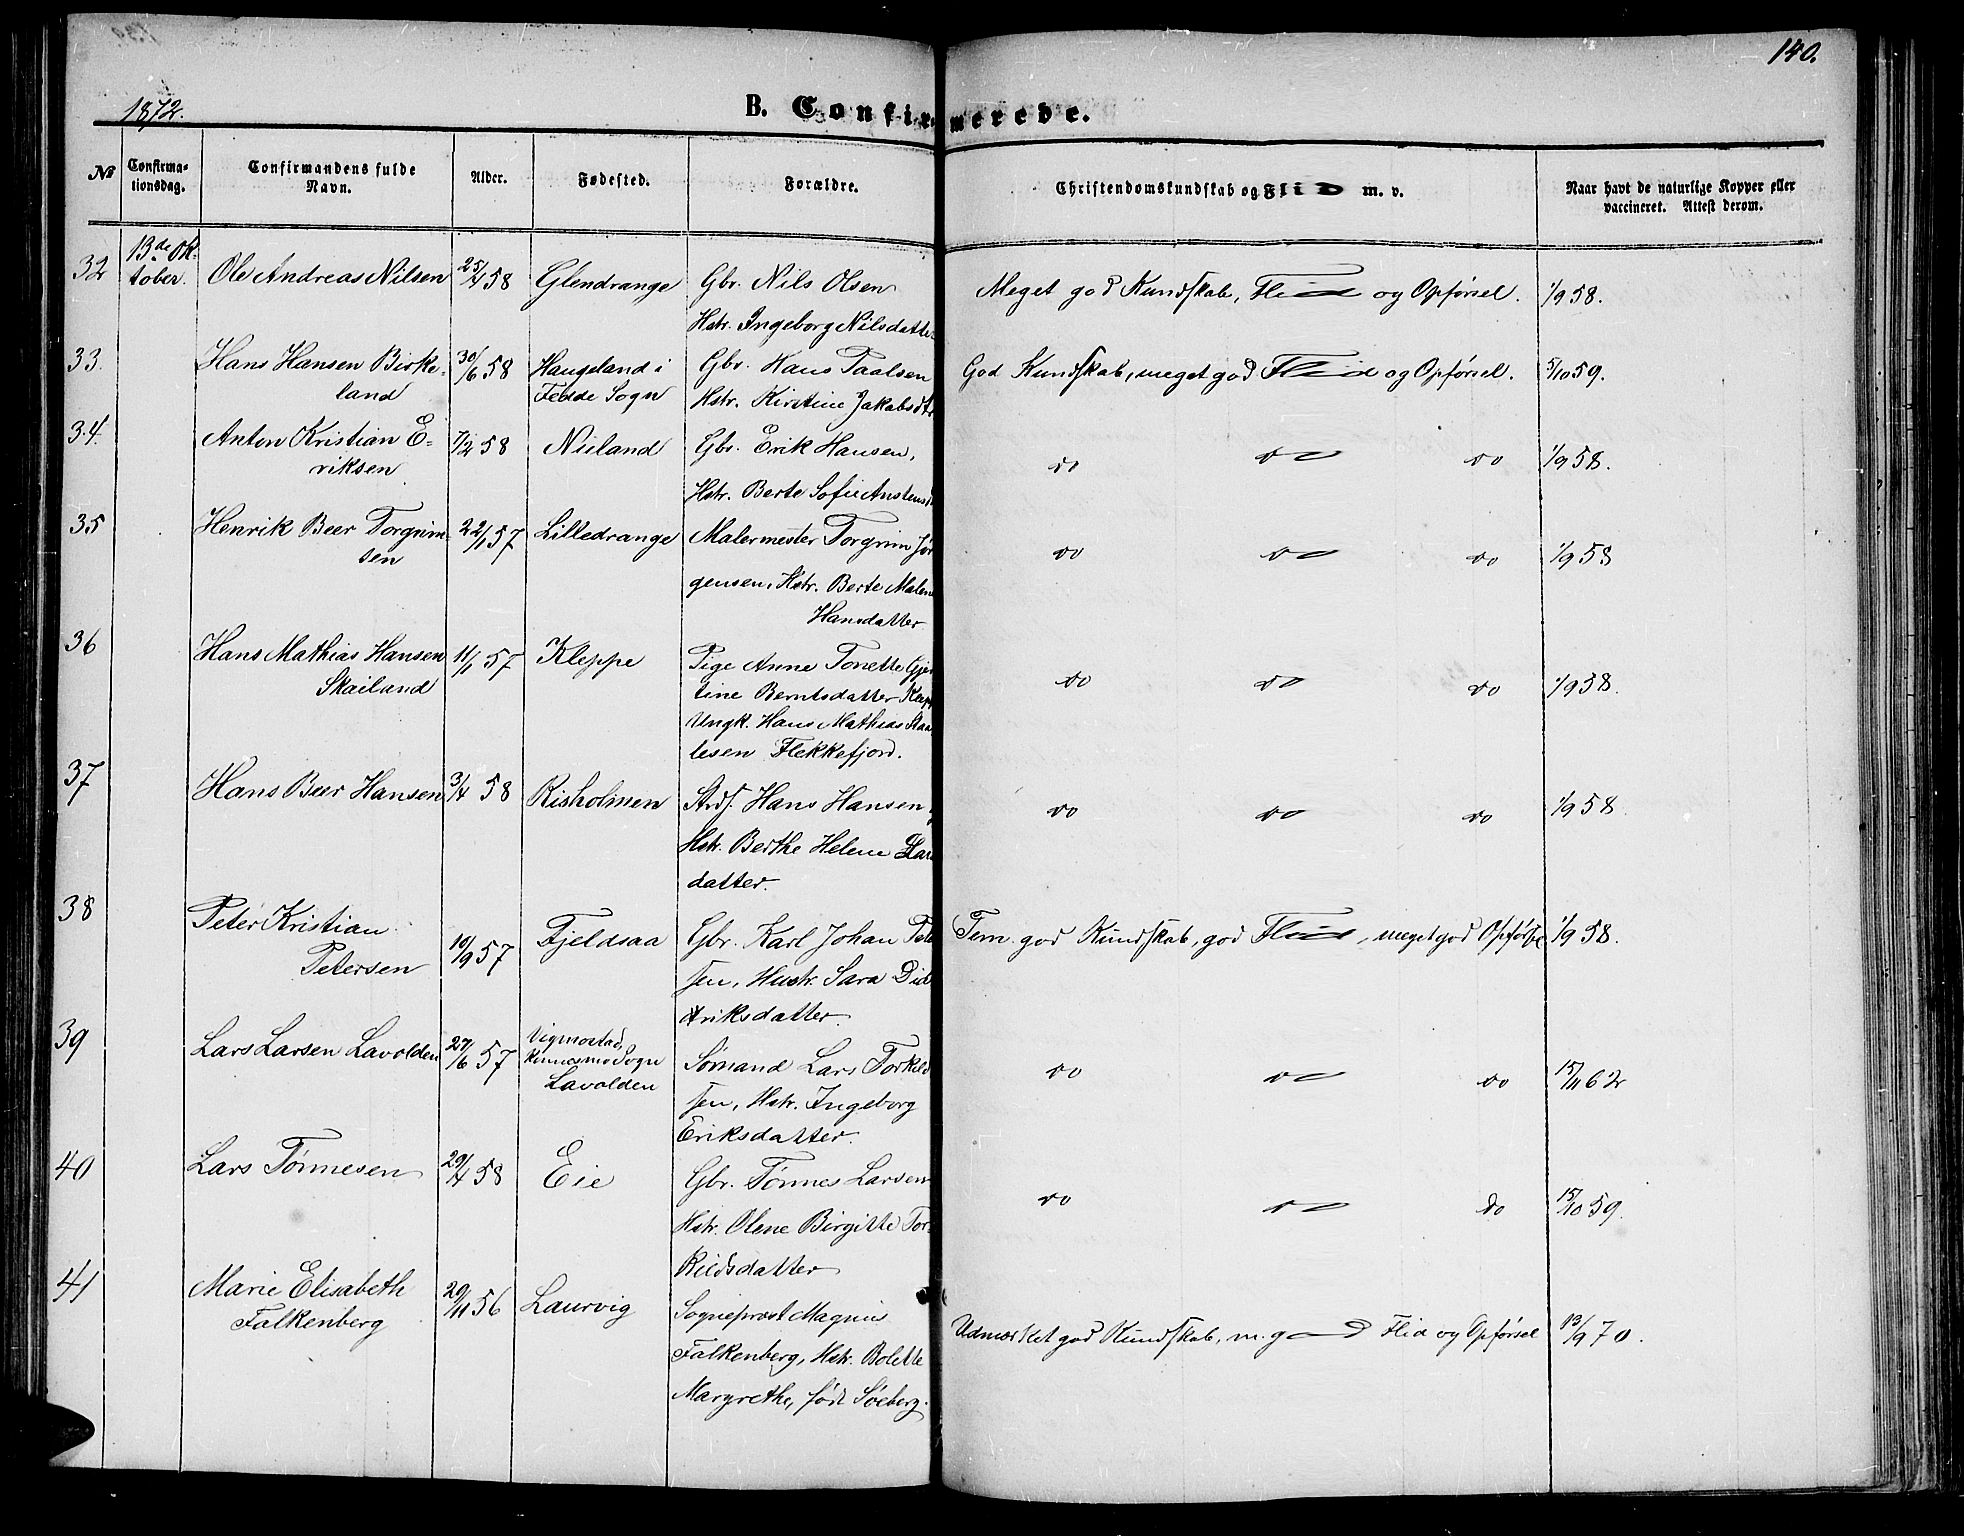 140.
1872.
B. Confirmerede.
№
Confirma-
tionsdag.
Confirmandens fulde
Navn.
Alder.
Fødested.
Forældre.
Christendomskundskab og Flid m. v.
Naar havt de naturlige Kopper eller
vaccineret. Attest derom.
32
13de Ok-
tober.
Ole Andreas Nilsen
25/4 58
Glendrange
Gbr. Nils Olsen
Hstr. Ingeborg Nilsdatte
Meget god Kundskab, Flid og Opførsel.
1/9 58.
33.
Hans Hansen Birke-
land
30/6 58
Haugeland i
Fedde Sogn
Gbr. Hans Paalsen
Hstr. Kirstine Jakobsdt
God Kundskab, meget god Flid og Opførsel.
5/10 59.
34.
Anton Kristian E-
riksen
7/2 58
Nuland
Gbr. Erik Hansen,
Hstr. Berte Sofie Anstens
do do do
1/9 58.
35
Henrik Beer Torgrim-
sen
22/1 57
Lilledrange
Malermester Torgrim Jør
gensen, Hstr. Berte Malen
Hansdatter
do do do
1/9 58
36
Hans Mathias Hansen
Skailand
11/1 57
Kleppe
Pige Anne Tonette Gjer
tine Berntsdatter Klep
Ungk. Hans Mathias Staa
lesen Flekkefjord.
do do do
1/9 58.
37
Hans Beer Hansen
3/4 58
Risholmen
Strds. Hans Hansen
Hstr. Berthe Helene Lar
datter.
do do do
1/9 58.
38
Peter Kristian
Petersen
10/9 57
Fjeldsaa
Gbr. Karl Johan Pete
sen, Hustr. Sara Did
riksdatter
Tem. god Kundskab, god Flid, meget god Opførsel
1/9 58.
39
Lars Larsen Lavolden
27/6 57
Vigmostad,
Sogn
Lavolden
Sømand Lars Torkild
sen, Hstr. Ingeborg
Eriksdatter.
do do do
15/11 62
40
Lars Tønnesen
29/4 58
Eie
Gbr. Tønnes Larsen
Hstr. Olene Birgitte Tor-
kildsdatter
do do do
15/10 59.
41
Marie Elisabeth
Falkenberg
20/11 56
Laurvig
Sogneprest Magnus
Falkenberg, Hstr. Bolette
Margrethe, født Søeberg.
Udmærket god Kundskab, m. god Flid og Opførsel
13/9 70.